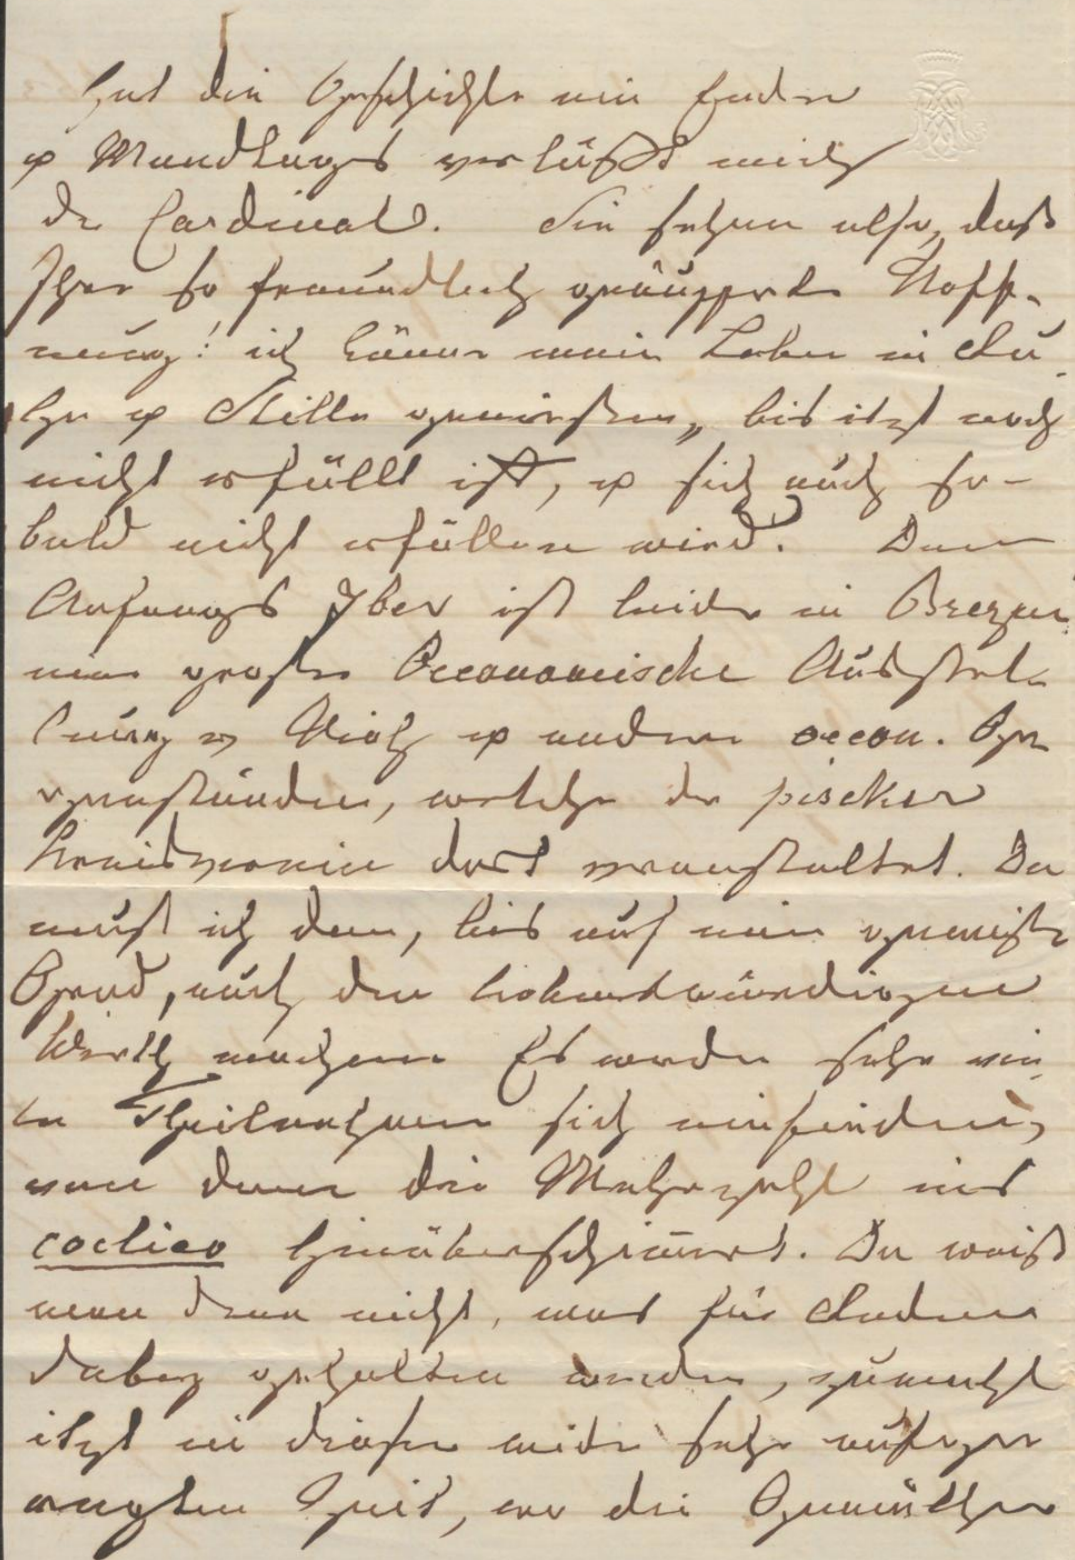 hat die Geschichte ein Ende
& Mondtags verläßt mich
der Cardinal. Sie sehen also, daß
Ihre so freundlich geäusserte Hoff-
nung: ich könne mein Leben in Ru-
he & Stille geniessen, bis itzt noch
nicht erfüllt ist, & sich auch so-
bald nicht erfüllen wird. Denn
Anfangs 7ber ist leider in Brezn.
eine große Oeconomische Ausstel-
lung v Vieh & andern oecon. Ge-
genständen, welche der piseker
Kreisverein dort veranstaltet. Da
muß ich denn, bis auf ein gewisser
Grad, auch den liebenswürdigen
Wirth machen. Es werden sehr vie-
le Theilnehmer sich einfinden,
von denen die Mehrzahl ins
hinüberschimert. Da weiß
man denn nicht, was für Reden
dabey gehalten werden, zumahl
itzt in dieser wieder sehr aufge-
regten Zeit, wo die Gemüther